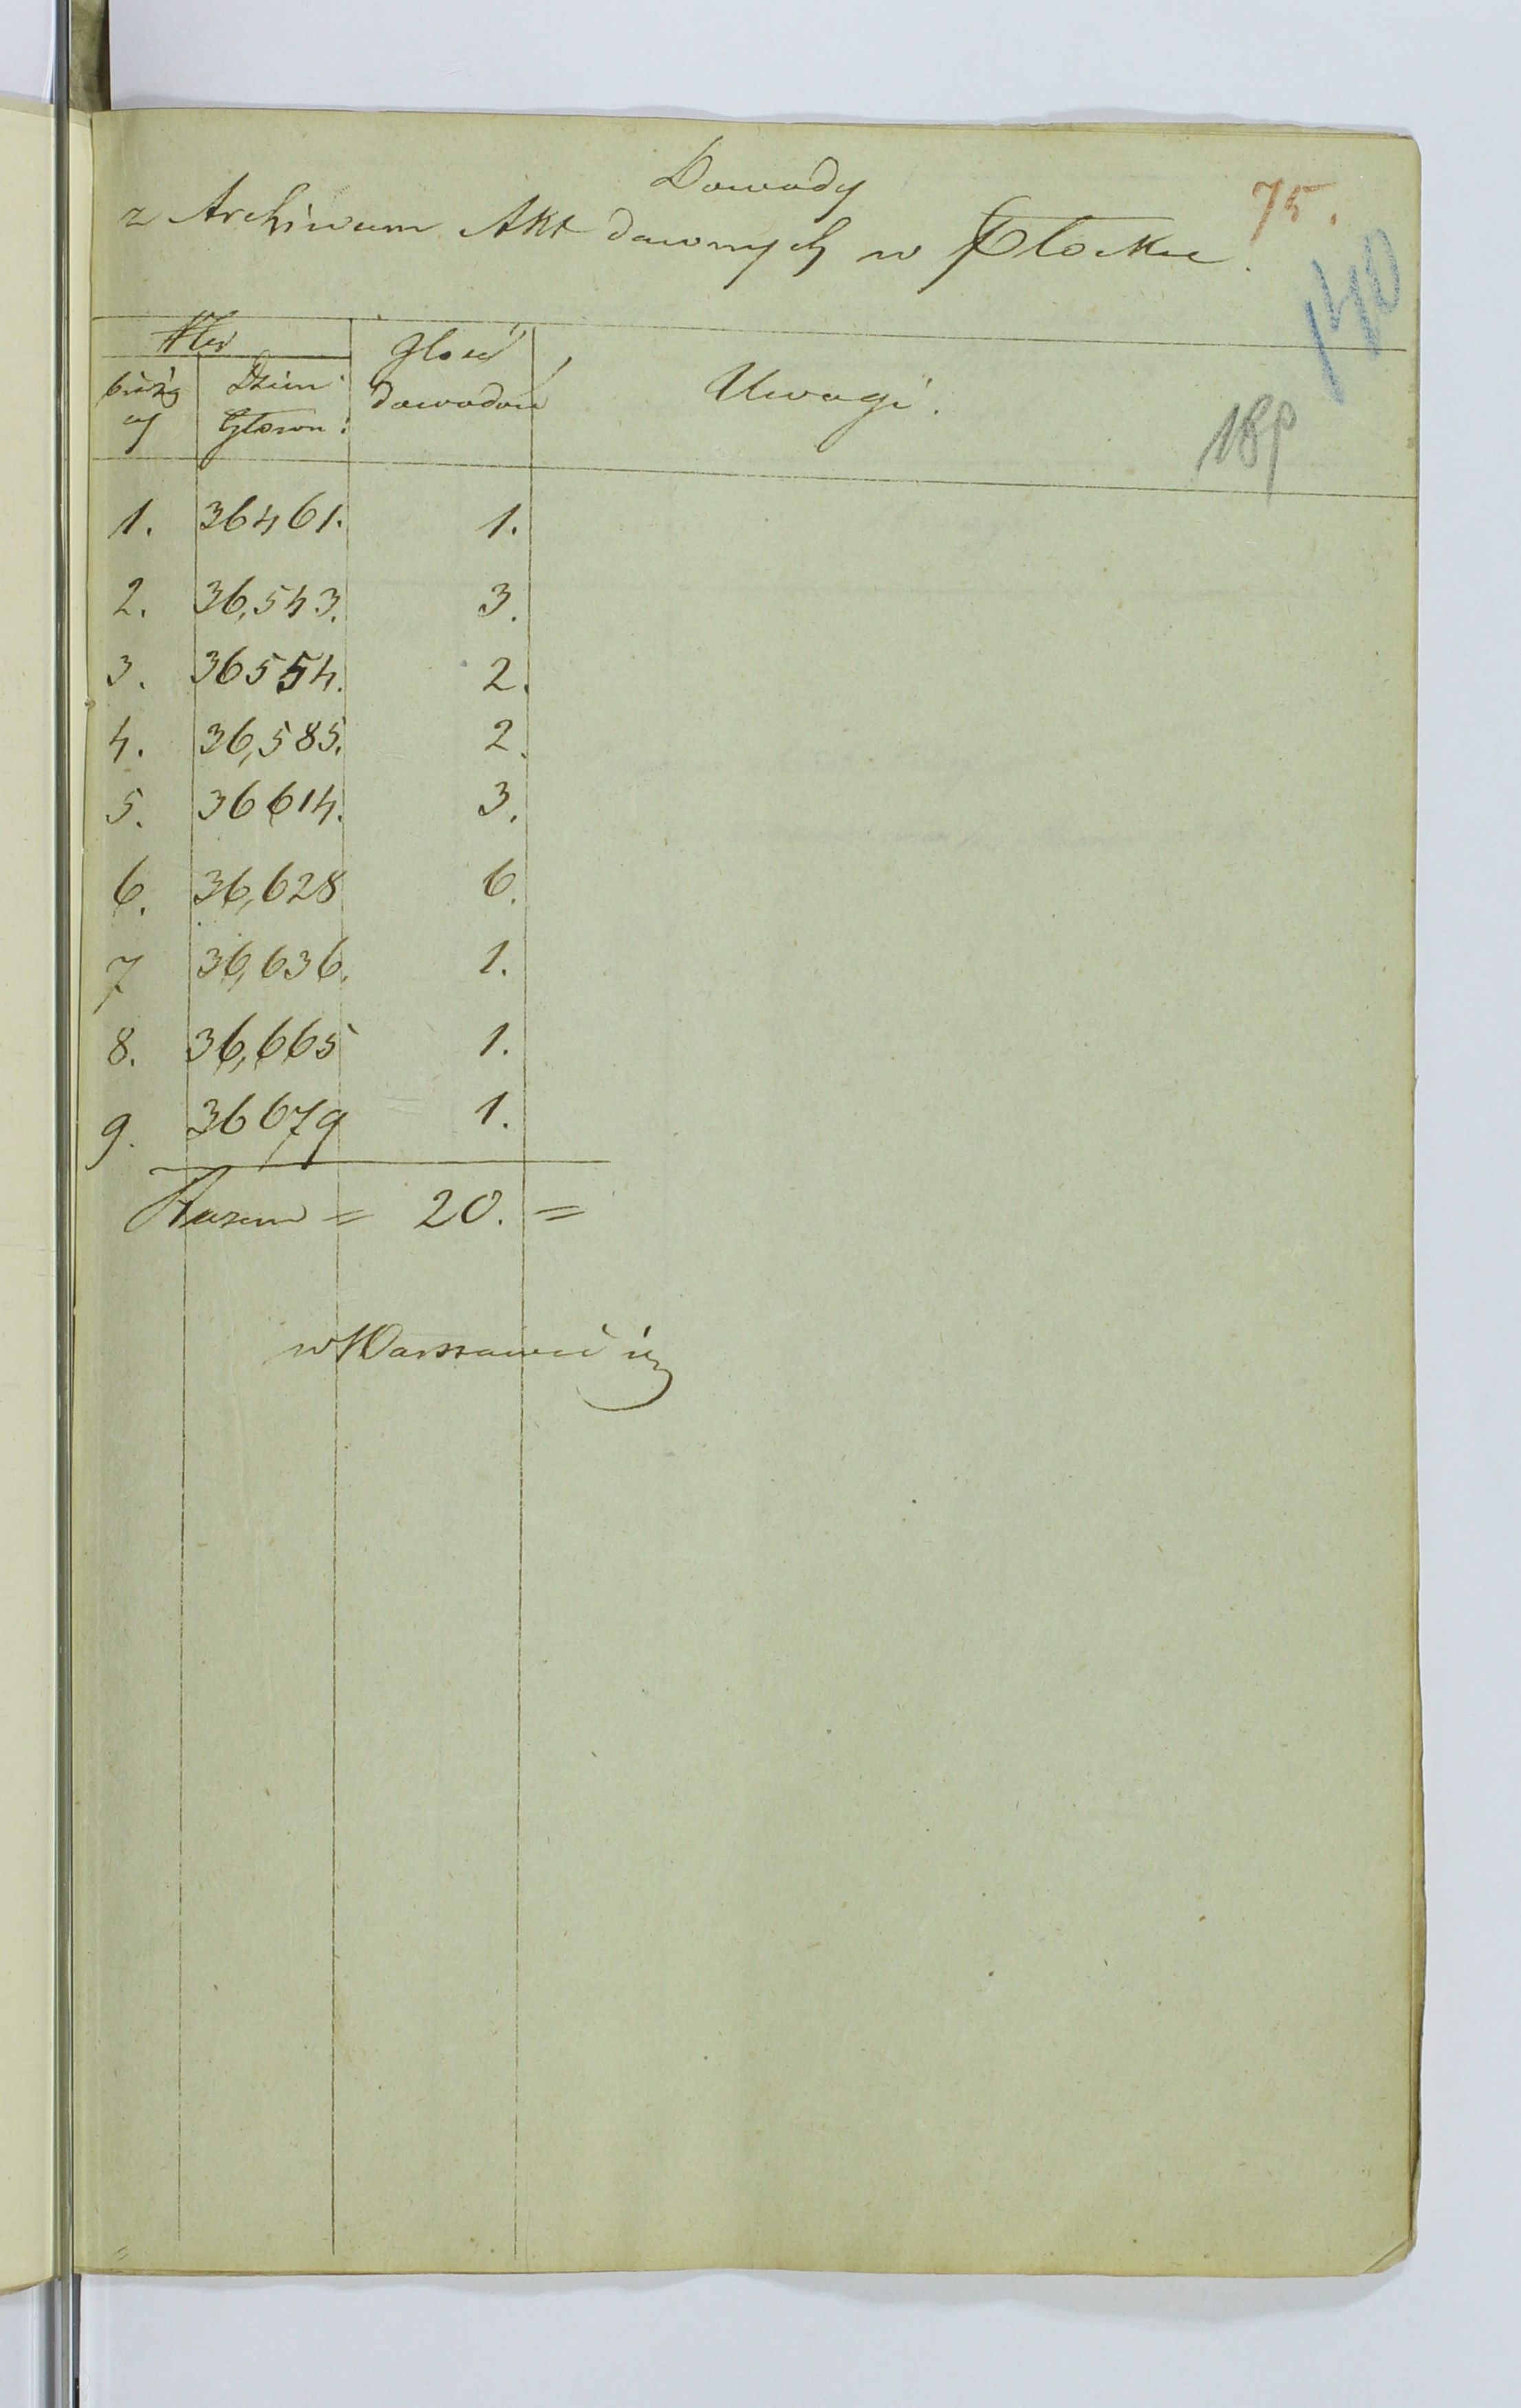 Dowody
z Archiwum Akt dawnych w Płocku.
75.
140
Ner
Ilość
bieżą
Dzien:
dowodów
Uwagi.
cy
Głown:
18p
1. 36461. 1.
2. 36,543. 3.
3. 36554. 2.
4. 36,585. 2.
5. 36614. 3.
6. 36,628 6.
7 36,636. 1.
8. 36,665 1.
9. 36679 1.
Razem = 20. =
w Warszawie